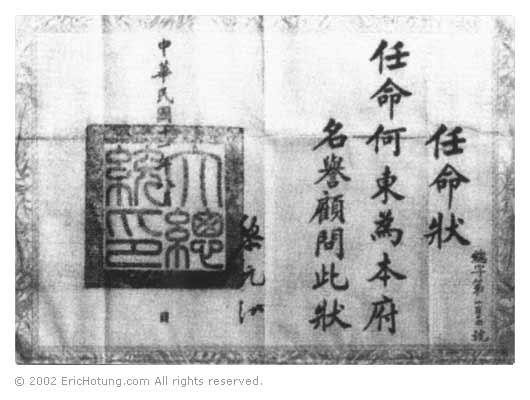 任命狀
任命何東為本府
名譽顧問此狀
黎元洪
大總統印
中華民國
日
© 2002 EricHotung.com All rights reserved.